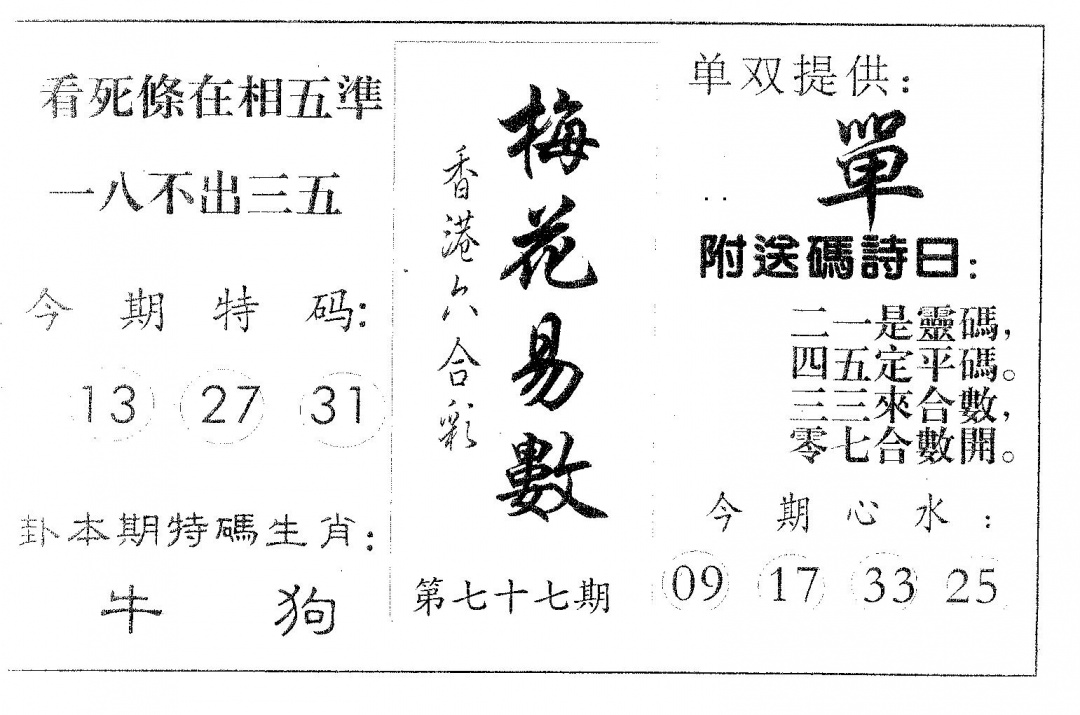 看死條在相五準
一八不出三五
今期特码:
13 27 31
卦本期特碼生肖:
牛 狗
梅花易數
香港六合彩
第七十七期
单双提供:
單
附送碼詩曰:
二一是靈碼,
四五定平碼。
三三來合數,
零七合數開。
今期心水:
09 17 33 25